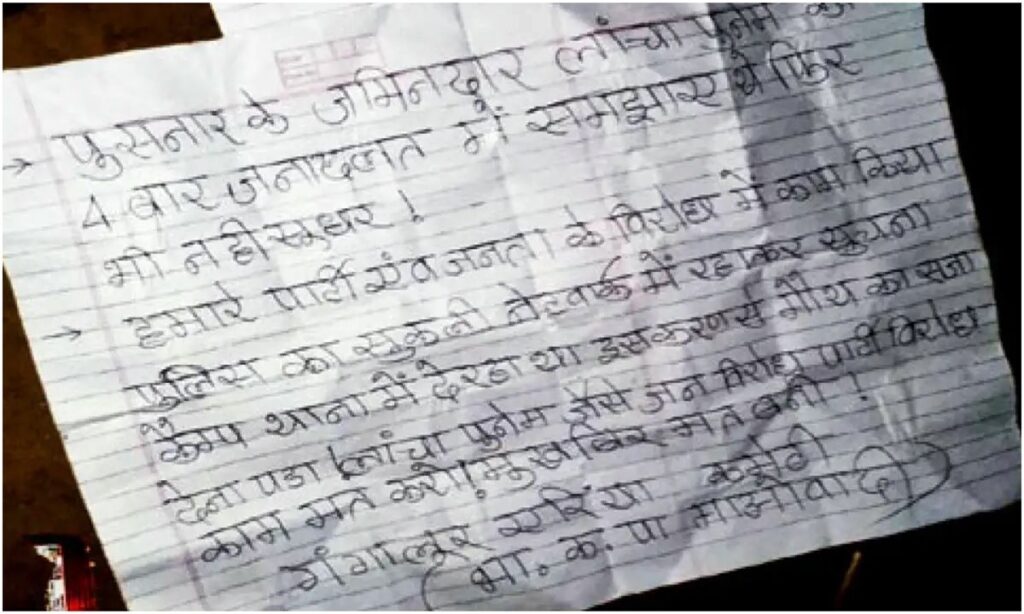 → पुसनार के जमिनदार लांचा पुनेम को
4 बार जनादलत में समझाए थे फिर
भी नही सुधर !
→ हमारे पार्टी एंव जनता के विरोध में काम किया
पुलिस का सुकली नेटवर्क में रहाकर सुचना
कैम्प थाना में दे रहा था इसकरण से मौथ का सजा
देना पडा। लांचा पुनेम जैसे जन विरोध पार्टी विरोध
काम मत करो! मुखबिर मत बनो !
गंगालूर एरिया कमेटी
(भा. क. पा माओवादी)